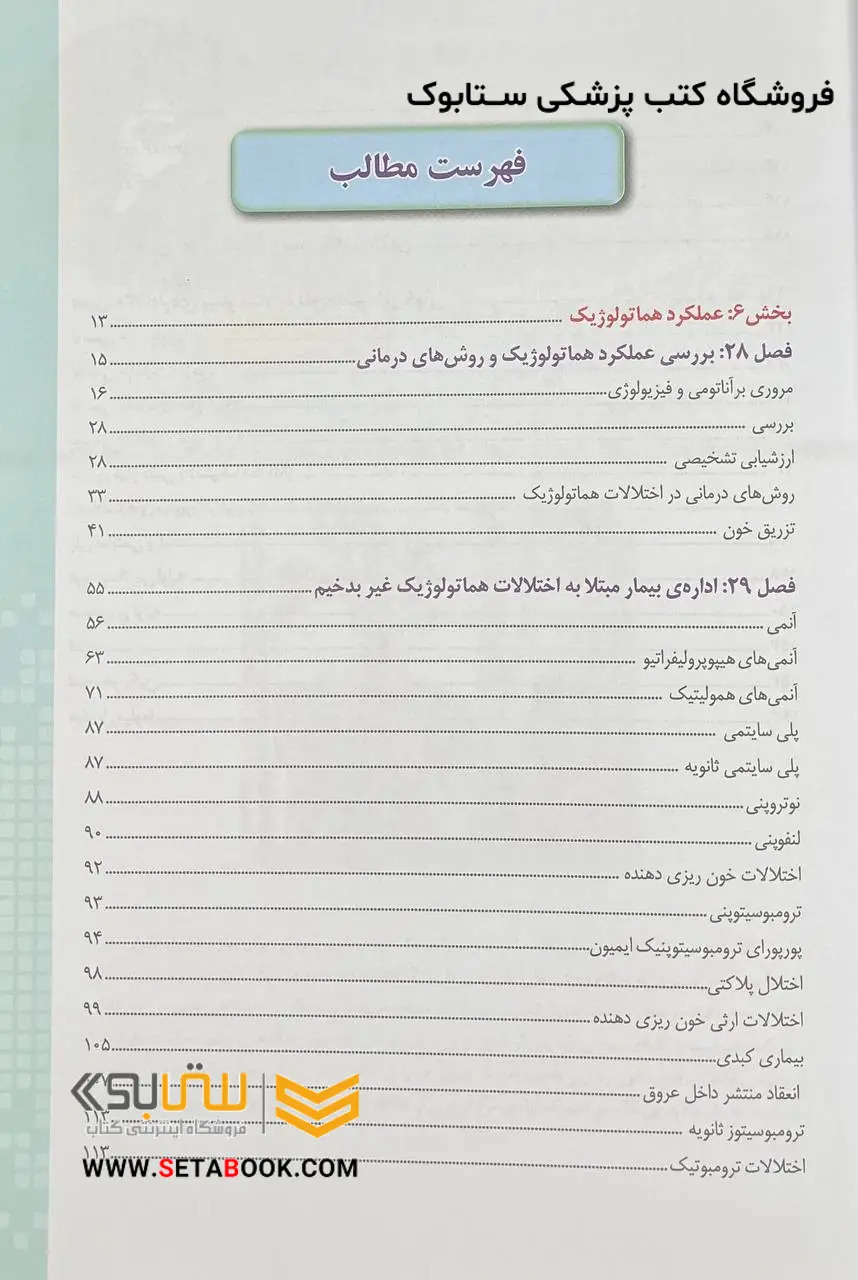 فروشگاه کتب پزشکی ستابوک
فهرست مطالب
بخش ۶: عملکرد هماتولوژیک ۱۳
فصل ۲۸: بررسی عملکرد هماتولوژیک و روش‌های درمانی ۱۵
مروری بر آناتومی و فیزیولوژی ۱۶
بررسی ۲۸
ارزشیابی تشخیصی ۲۸
روش‌های درمانی در اختلالات هماتولوژیک ۳۳
تزریق خون ۴۱
فصل ۲۹: اداره‌ی بیمار مبتلا به اختلالات هماتولوژیک غیر بدخیم ۵۵
آنمی ۵۶
آنمی‌های هیپوپرولیفراتیو ۶۳
آنمی‌های همولیتیک ۷۱
پلی سایتمی ۸۷
پلی سایتمی ثانویه ۸۷
نوتروپنی ۸۸
لنفوپنی ۹۰
اختلالات خون ریزی دهنده ۹۲
ترومبوسیتوپنی ۹۳
پورپورای ترومبوسیتوپنیک ایمیون ۹۴
اختلال پلاکتی ۹۸
اختلالات ارثی خون ریزی دهنده ۹۹
بیماری کبدی ۱۰۵
انعقاد منتشر داخل عروق
ترومبوسیتوز ثانویه ۱۱۳
اختلالات ترومبوتیک ۱۱۳
ستابوک
فروشگاه اینترنتی کتاب
WWW.SETABOOK.COM